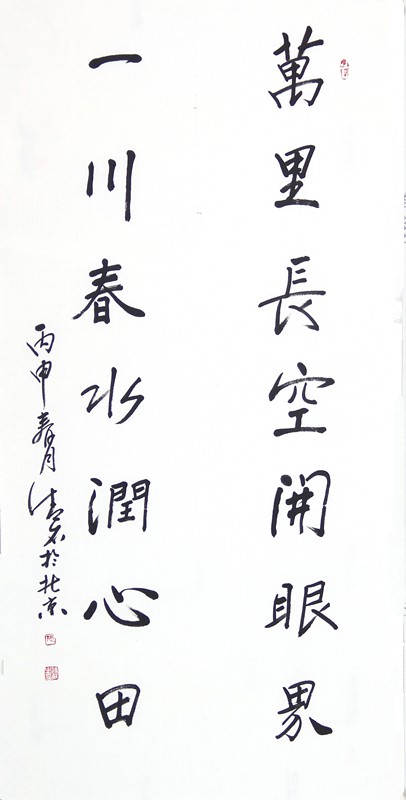 萬里長空開眼界
一川春水潤心田
丙申春月清石於北京